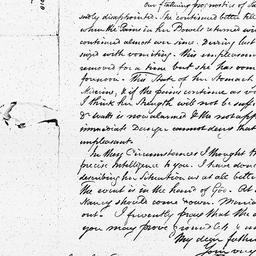 Our flattering prognostics of Sa
sadly disappointed. She continued better till
when the Pains in her Bowels returned with
continued almost ever since. During last
night with vomiting. This unpleasant
removed for a time but she has vom
forenoon. This State of her Stomach
Medicine, & if the pains continue as vi
I think her Strength will not be suff
Dr Watts is now alarmed & tho not app
immediate Danger cannot deny that
unpleasant.
In these Circumstances I thought to
precise Intelligence to you. I have done
describing her Situation as at all bette
The event is in the hand of God. At
Nancy should come down. Mend
out. I fervently pray that the
you may prove groundless &
My dear father
Your very